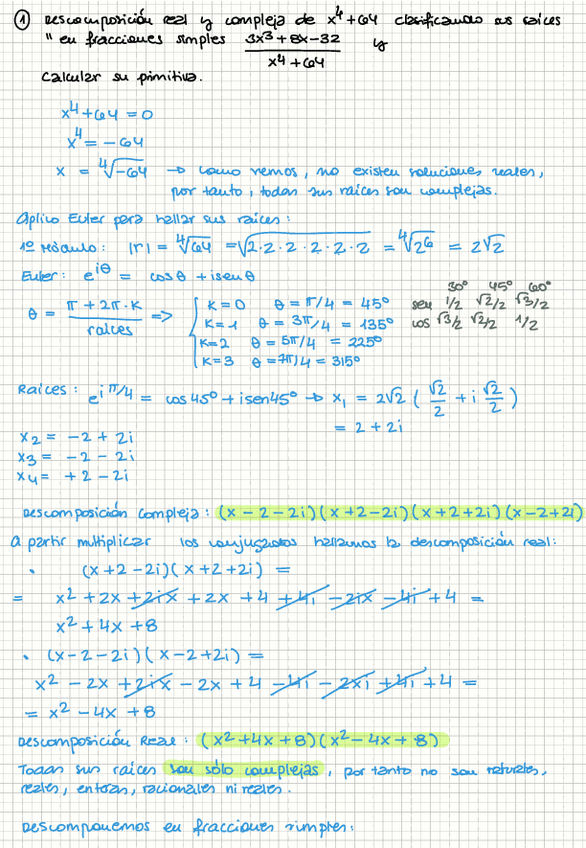 ① Descomposición real y compleja de x⁴+64 clasificando as raíces
" en fracciones simples (3x³+8x-32)/(x⁴+64) y
calcular su pimitiva.
x⁴+64 = 0
x⁴ = -64
x = ⁴√-64 → como vemos, no existen soluciones reales,
por tanto, todas sus raíces son complejas.
Aplico Euler para hallar sus raíces:
1º Módulo: |r| = ⁴√64 = √2·2·2·2·2·2 = ⁴√2⁶ = 2√2
Euler: e^iθ = cosθ + isenθ
30º 45º 60º
sen 1/2 √2/2 √3/2
cos √3/2 √2/2 1/2
θ = (π + 2π·K)/raíces => { K=0 θ = π/4 = 45º
K=1 θ = 3π/4 = 135º
K=2 θ = 5π/4 = 225º
K=3 θ = 7π/4 = 315º
Raíces: e^iπ/4 = cos45º + isen45º → x₁ = 2√2 (√2/2 + i √2/2)
= 2+2i
x₂ = -2+2i
x₃ = -2-2i
x₄ = +2-2i
Descomposición Compleja: (x-2-2i)(x+2-2i)(x+2+2i)(x-2+2i)
A partir multiplicar los conjugados hallamos la descomposición real:
· (x+2-2i)(x+2+2i) =
= x²+2x+2ix+2x+4+4i-2ix-4i+4 =
x²+4x+8
· (x-2-2i)(x-2+2i) =
x²-2x+2ix-2x+4-4i-2xi+4i+4 =
= x²-4x+8
Descomposición Real: (x²+4x+8)(x²-4x+8)
Todas sus raíces son sólo complejas, por tanto no son naturales,
reales, enteras, racionales ni reales.
Descomponemos en fracciones simples: